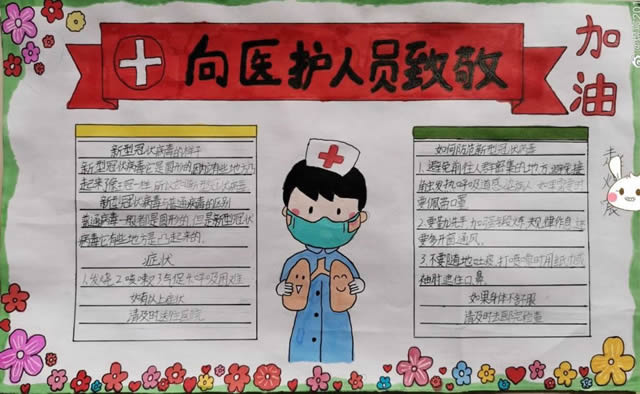 向医护人员致敬
加油
新型冠状病毒的样子
新型冠状病毒它是圆形的,有些地方凸
起来了像王冠一样,所以
新型冠状病毒与普通病毒的区别
普通病毒一般都是圆形的,但是新型冠状
病毒它有些地方是凸起来的.
症状
1.发烧 2.咳嗽 3.与促呼吸困难
如有以上症状
请及时去医院
如何防范新型冠状病毒
1.避免前往人群密集的地方,避免接
触发热呼吸道感染病人,如果需要时
要佩带口罩
2.要勤洗手,加强锻炼,规律作息
要多开窗通风.
3.不要随地吐痰,打喷嚏时用纸巾或
袖肘遮住口鼻
如果身体不舒服
请及时去医院检查